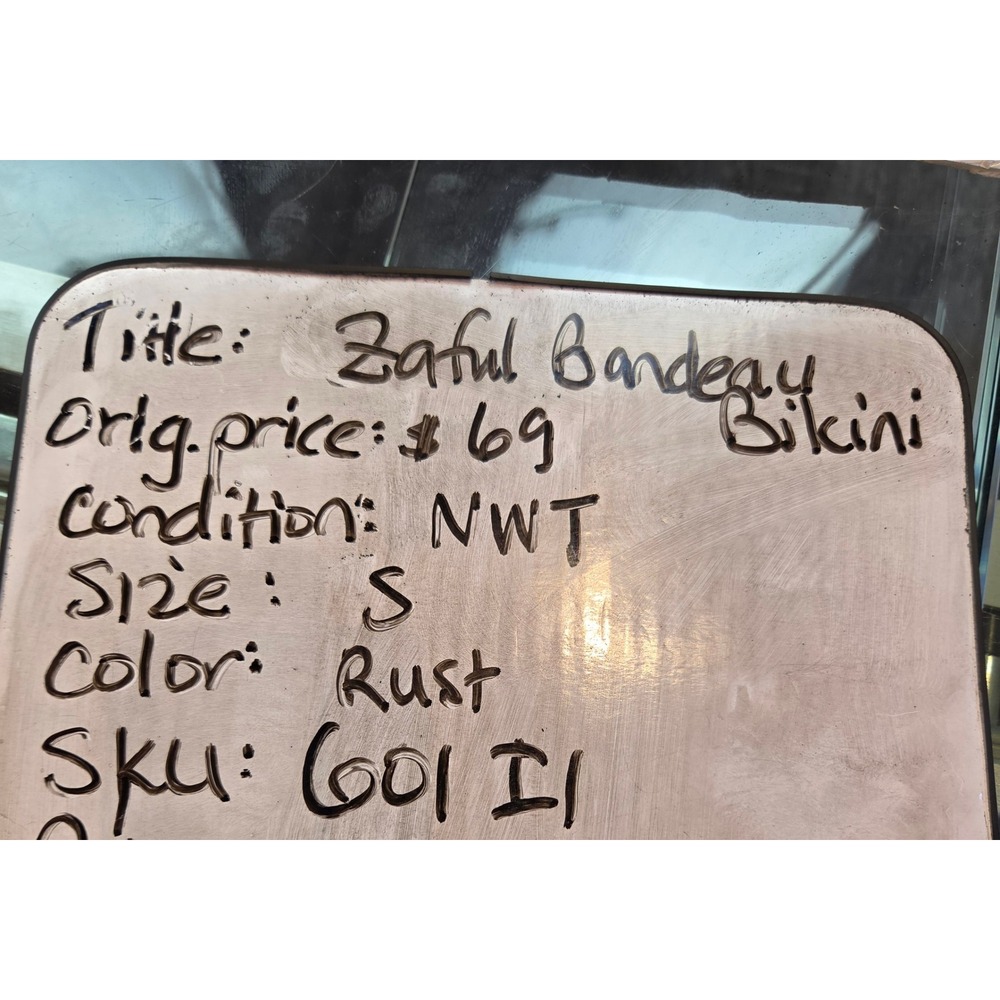 Title: Zaful Bandeau
Bikini
Orig.price: $ 69
Condition: NWT
Size: S
Color: Rust
SKU: 601 I1